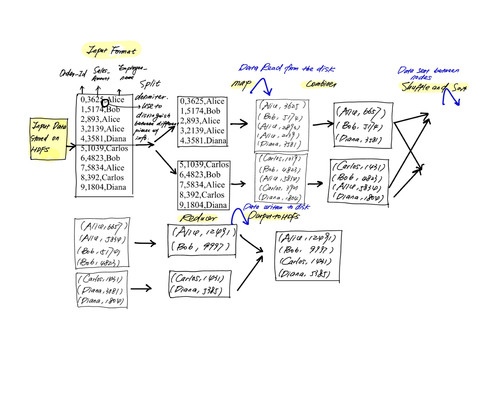 Input Format
Data Read from the disk
Data sent between nodes
Order-Id Sales-Amount Employee-name
Split
map
Combiner
Shuffle and Sort
0,3625,Alice
1,5174,Bob
2,893,Alice
3,2139,Alice
4,3581,Diana
5,1039,Carlos
6,4823,Bob
7,5834,Alice
8,392,Carlos
9,1804,Diana
delimiter
use to
distinguish
between different
piece of
info.
Input Data
stored on
HDFS
0,3625,Alice
1,5174,Bob
2,893,Alice
3,2139,Alice
4,3581,Diana
5,1039,Carlos
6,4823,Bob
7,5834,Alice
8,392,Carlos
9,1804,Diana
(Alice, 3625)
(Bob, 5174)
(Alice, 893)
(Alice, 2139)
(Diana, 3581)
(Carlos, 1039)
(Bob, 4823)
(Alice, 5834)
(Carlos, 392)
(Diana, 1804)
(Alice, 6657)
(Bob, 5174)
(Diana, 3581)
(Carlos, 1431)
(Bob, 4823)
(Alice, 5834)
(Diana, 1804)
Reducer
Data written to disk
Output to HDFS
(Alice, 6657)
(Alice, 5834)
(Bob, 5174)
(Bob, 4823)
(Carlos, 1431)
(Diana, 3581)
(Diana, 1804)
(Alice, 12491)
(Bob, 9997)
(Carlos, 1431)
(Diana, 5385)
(Alice, 12491)
(Bob, 9997)
(Carlos, 1431)
(Diana, 5385)